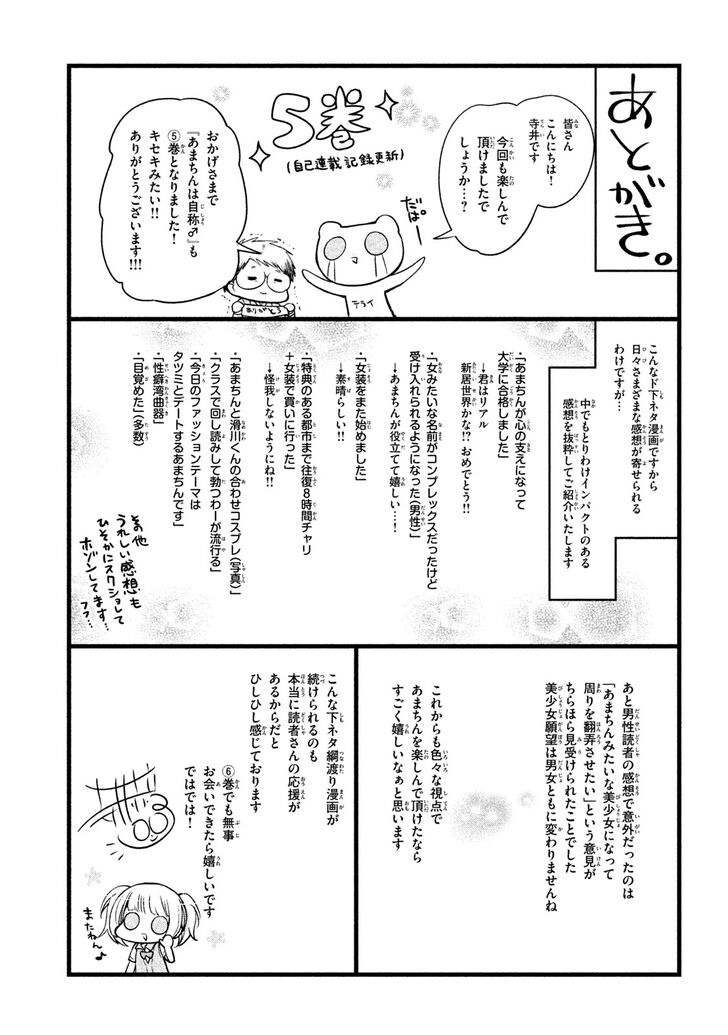 あとがき。
皆さん
こんにちは!
寺井です
今回も楽しんで
頂けましたで
しょうか…?
5巻
(自己連載記録更新)
だばー
テライ
おかげさまで
『あまちんは自称♂』も
⑤巻となりました!
キセキみたい!!
ありがとうございます!!!
ありがとう
こんなド下ネタ漫画ですから
日々さまざまな感想が寄せられる
わけですが…
中でもとりわけインパクトのある
感想を抜粋してご紹介いたします
・「あまちんが心の支えになって
大学に合格しました」
→君はリアル
新居世界かな!? おめでとう!!
・「女みたいな名前がコンプレックスだったけど
受け入れられるようになった(男性)」
→あまちんが役立てて嬉しい…!
・「女装をまた始めました」
→素晴らしい!!
・「特典のある都市まで往復8時間チャリ
+女装で買いに行った」
→怪我しないようにね!!
・「あまちんと滑川くんの合わせコスプレ(写真)」
・「クラスで回し読みして勃つわーが流行る」
・「今日のファッションテーマは
タツミとデートするあまちんです」
・「性癖湾曲器」
・「目覚めた」(多数)
その他
うれしい感想も
ひそかにスクショして
ホゾンしてます…
フフ…
あと男性読者の感想で意外だったのは
「あまちんみたいな美少女になって
周りを翻弄させたい」という意見が
ちらほら見受けられたことでした
美少女願望は男女ともに変わりませんね
これからも色々な視点で
あまちんを楽しんで頂けたなら
すごく嬉しいなぁと思います
こんな下ネタ綱渡り漫画が
続けられるのも
本当に読者さんの応援が
あるからだと
ひしひし感じております
⑥巻でも無事
お会いできたら嬉しいです
ではでは!
またねん♪